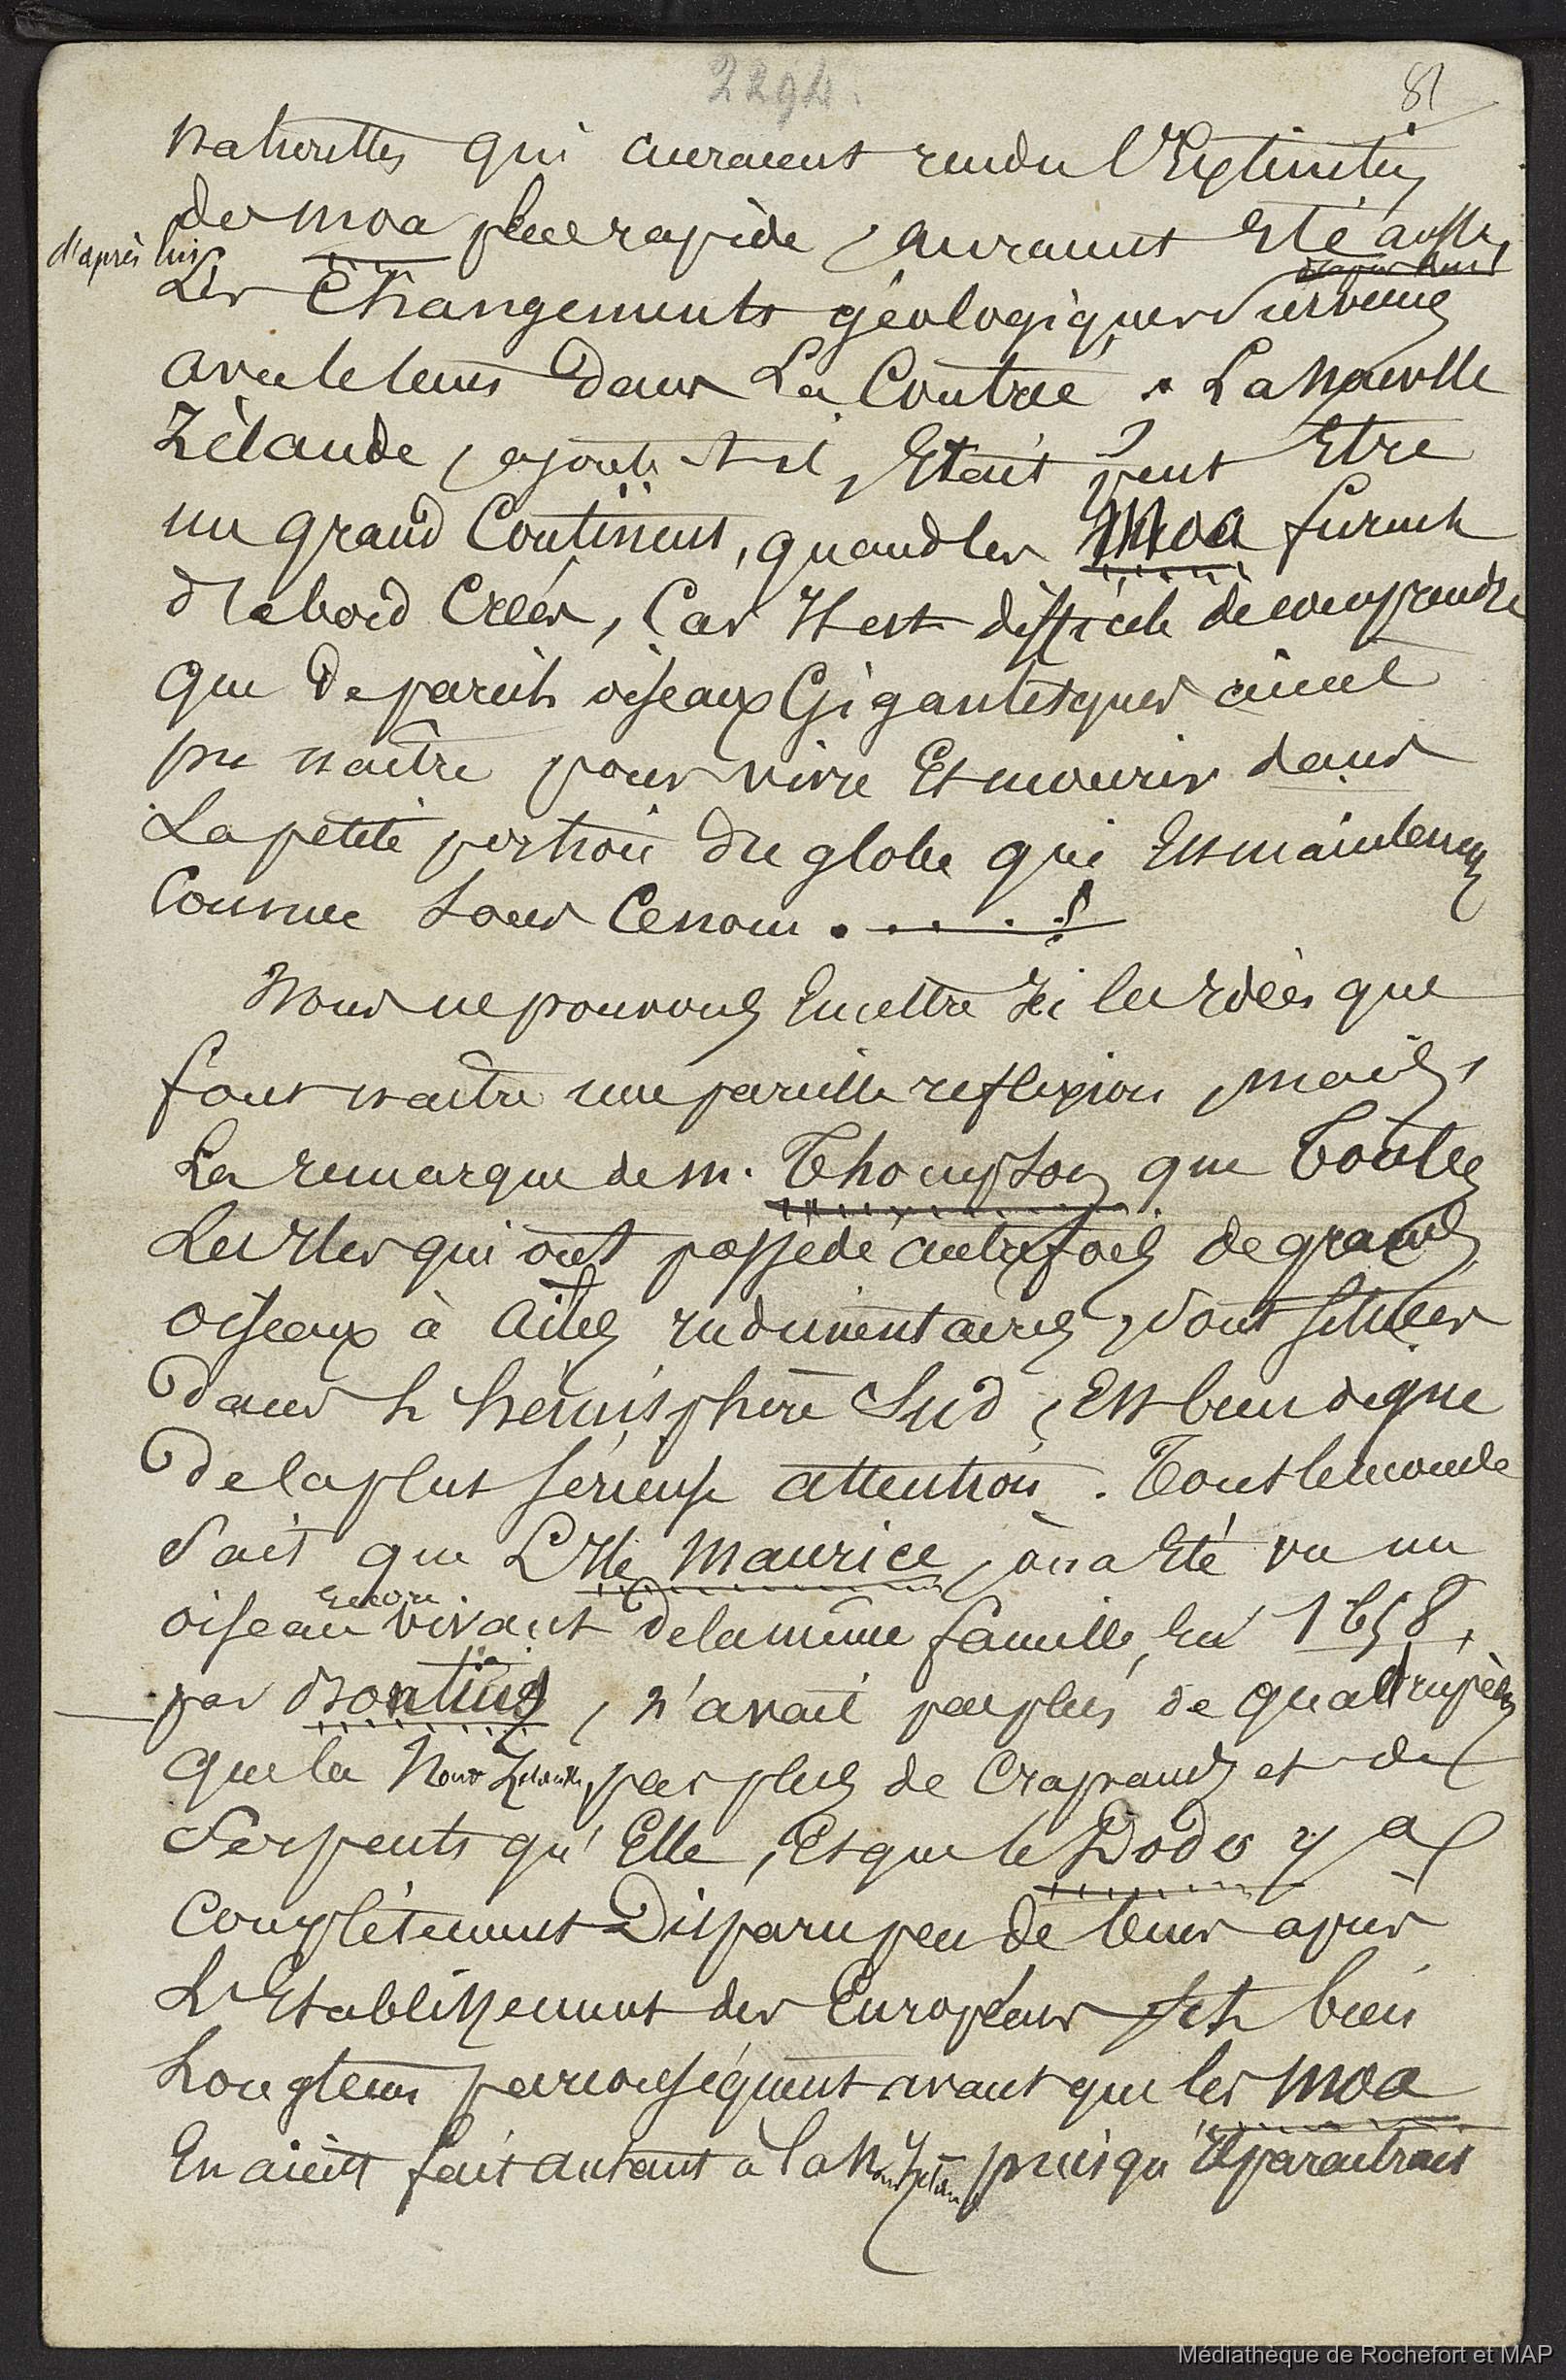 2294.
81
naturelles qui auraient rendu l'Extinction
des moa plus rapide, auraient Eté aussi,
d'après lui,
Les Changements géologiques Survenus
avec le tems dans La Contrée. La Nouvelle
Zélande, ajoute-t-il, Etait peut Etre
un grand Continent, quand les Moa furent
d'abord Créés, Car Il est difficile de comprendre
que de pareils oiseaux Gigantesques aient
pu naître pour vivre Et mourir dans
La petite portion du globe qui Est maintenant
Connue sous Ce nom . . . . . !
Nous ne pouvons Emettre Ici les Idées que
font naître une pareille reflexion, mais,
La remarque de M. Thompson que Toutes
Les Iles qui ont possédé autrefois de grands
oiseaux à ailes rudimentaires, Sont situées
Dans l'hémisphère Sud, Est bien digne
De la plus sérieuse attention. Tout le monde
Sait que L'Ile Maurice, où a Eté vu un
oiseau Encore vivant De la même famille, En 1658,
par Bontius, n'avait pas plus de quadrupèdes
que la Nouv Zélande, pas plus de Crapauds et de
Serpents qu'Elle, Et que le Dodo y a
Complètement Disparu peu de tems après
L'Etablissement des Européens Et bien
Longtems par conséquent avant que les moa
En aient fait autant à la Nouv Zélan puisqu'Il paraitrait
Médiathèque de Rochefort et MAP